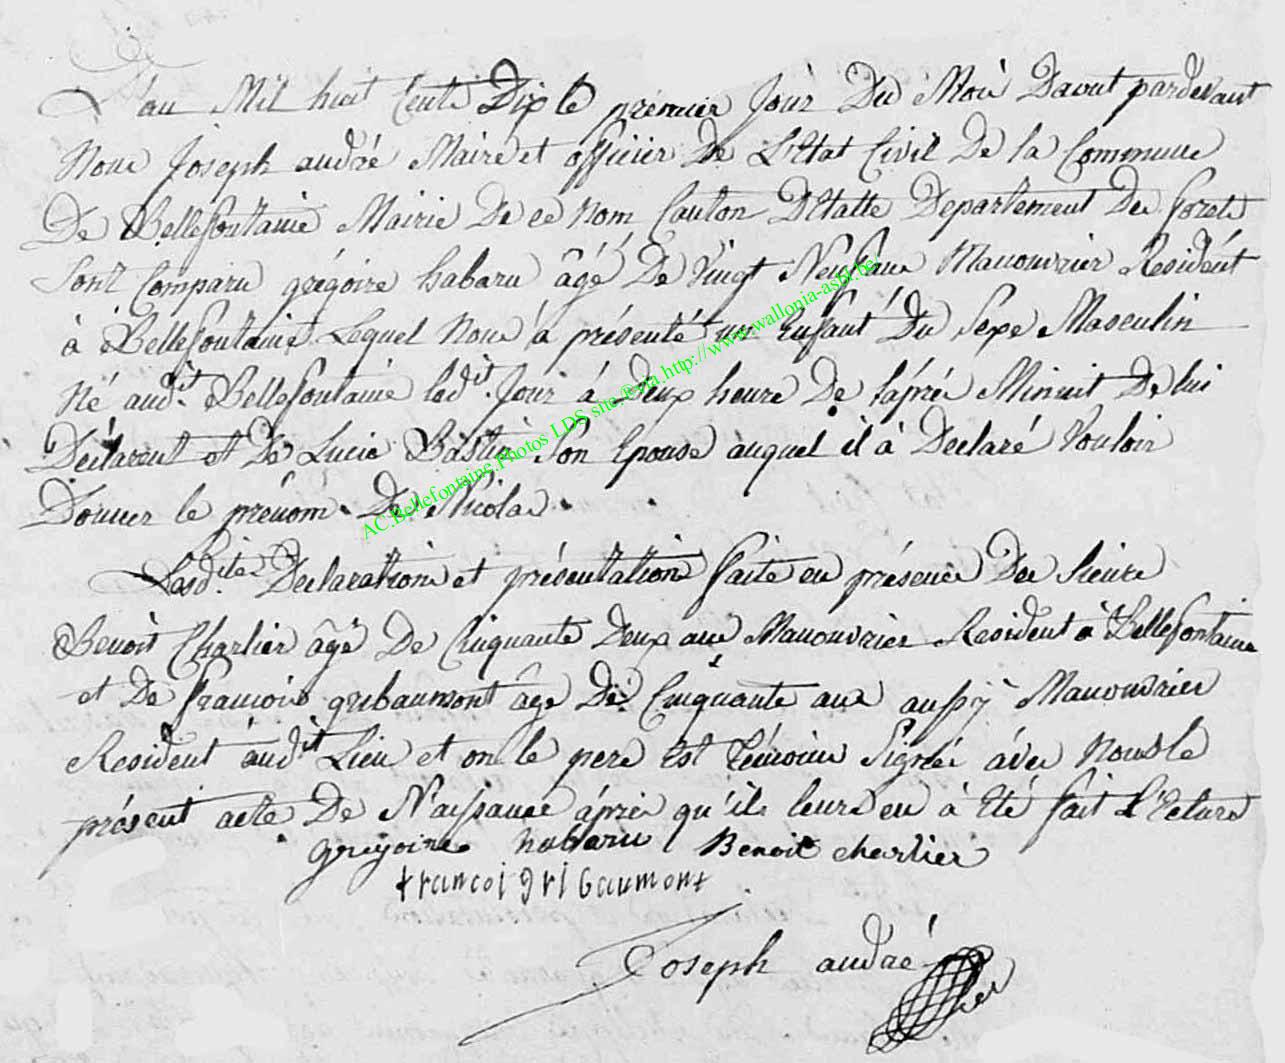 L'an Mil huit Cents Dix le prémier Jour Du Moi Daout pardevant
Nous Joseph andré Maire et officier De L'Etat Civil De la Commune
De Bellefontaine Mairie De ce Nom Canton D'Etalle Departement Des Forets
Sont Comparu grégoire habaru âgé De Vingt Neuf ans Manouvrier Résidént
à Bellefontaine Lequel Nous à présenté un Enfant Du Sexe Masculin
Né audit Bellefontaine ledit Jour à Deux heure De laprés Minuit De lui
Déclarent et De Lucie Bastin Son Epouse auquel il à Declaré Vouloir
Donner le prénom De Nicolas
Lesdites Declaration et présentation faite en présence Des Sieurs
Benoit Charlier âgé De Cinquante Deux ans Manouvrier Resident à Bellefontaine
et De francois gribaumont âgé De Cinquante ans aussy Manouvrier
Resident audit Lieu et on le pere Est Témoins Signés avec Nous le
présent acte De Naissance áprés qu'ils leurs en à Eté fait L'Ecture
gregoire habaru Benoit charlier
francoi gribaumont
Joseph andrée
AC.Bellefontaine.Photos LDS site.®via.http://www.wallonia-asbl.be/